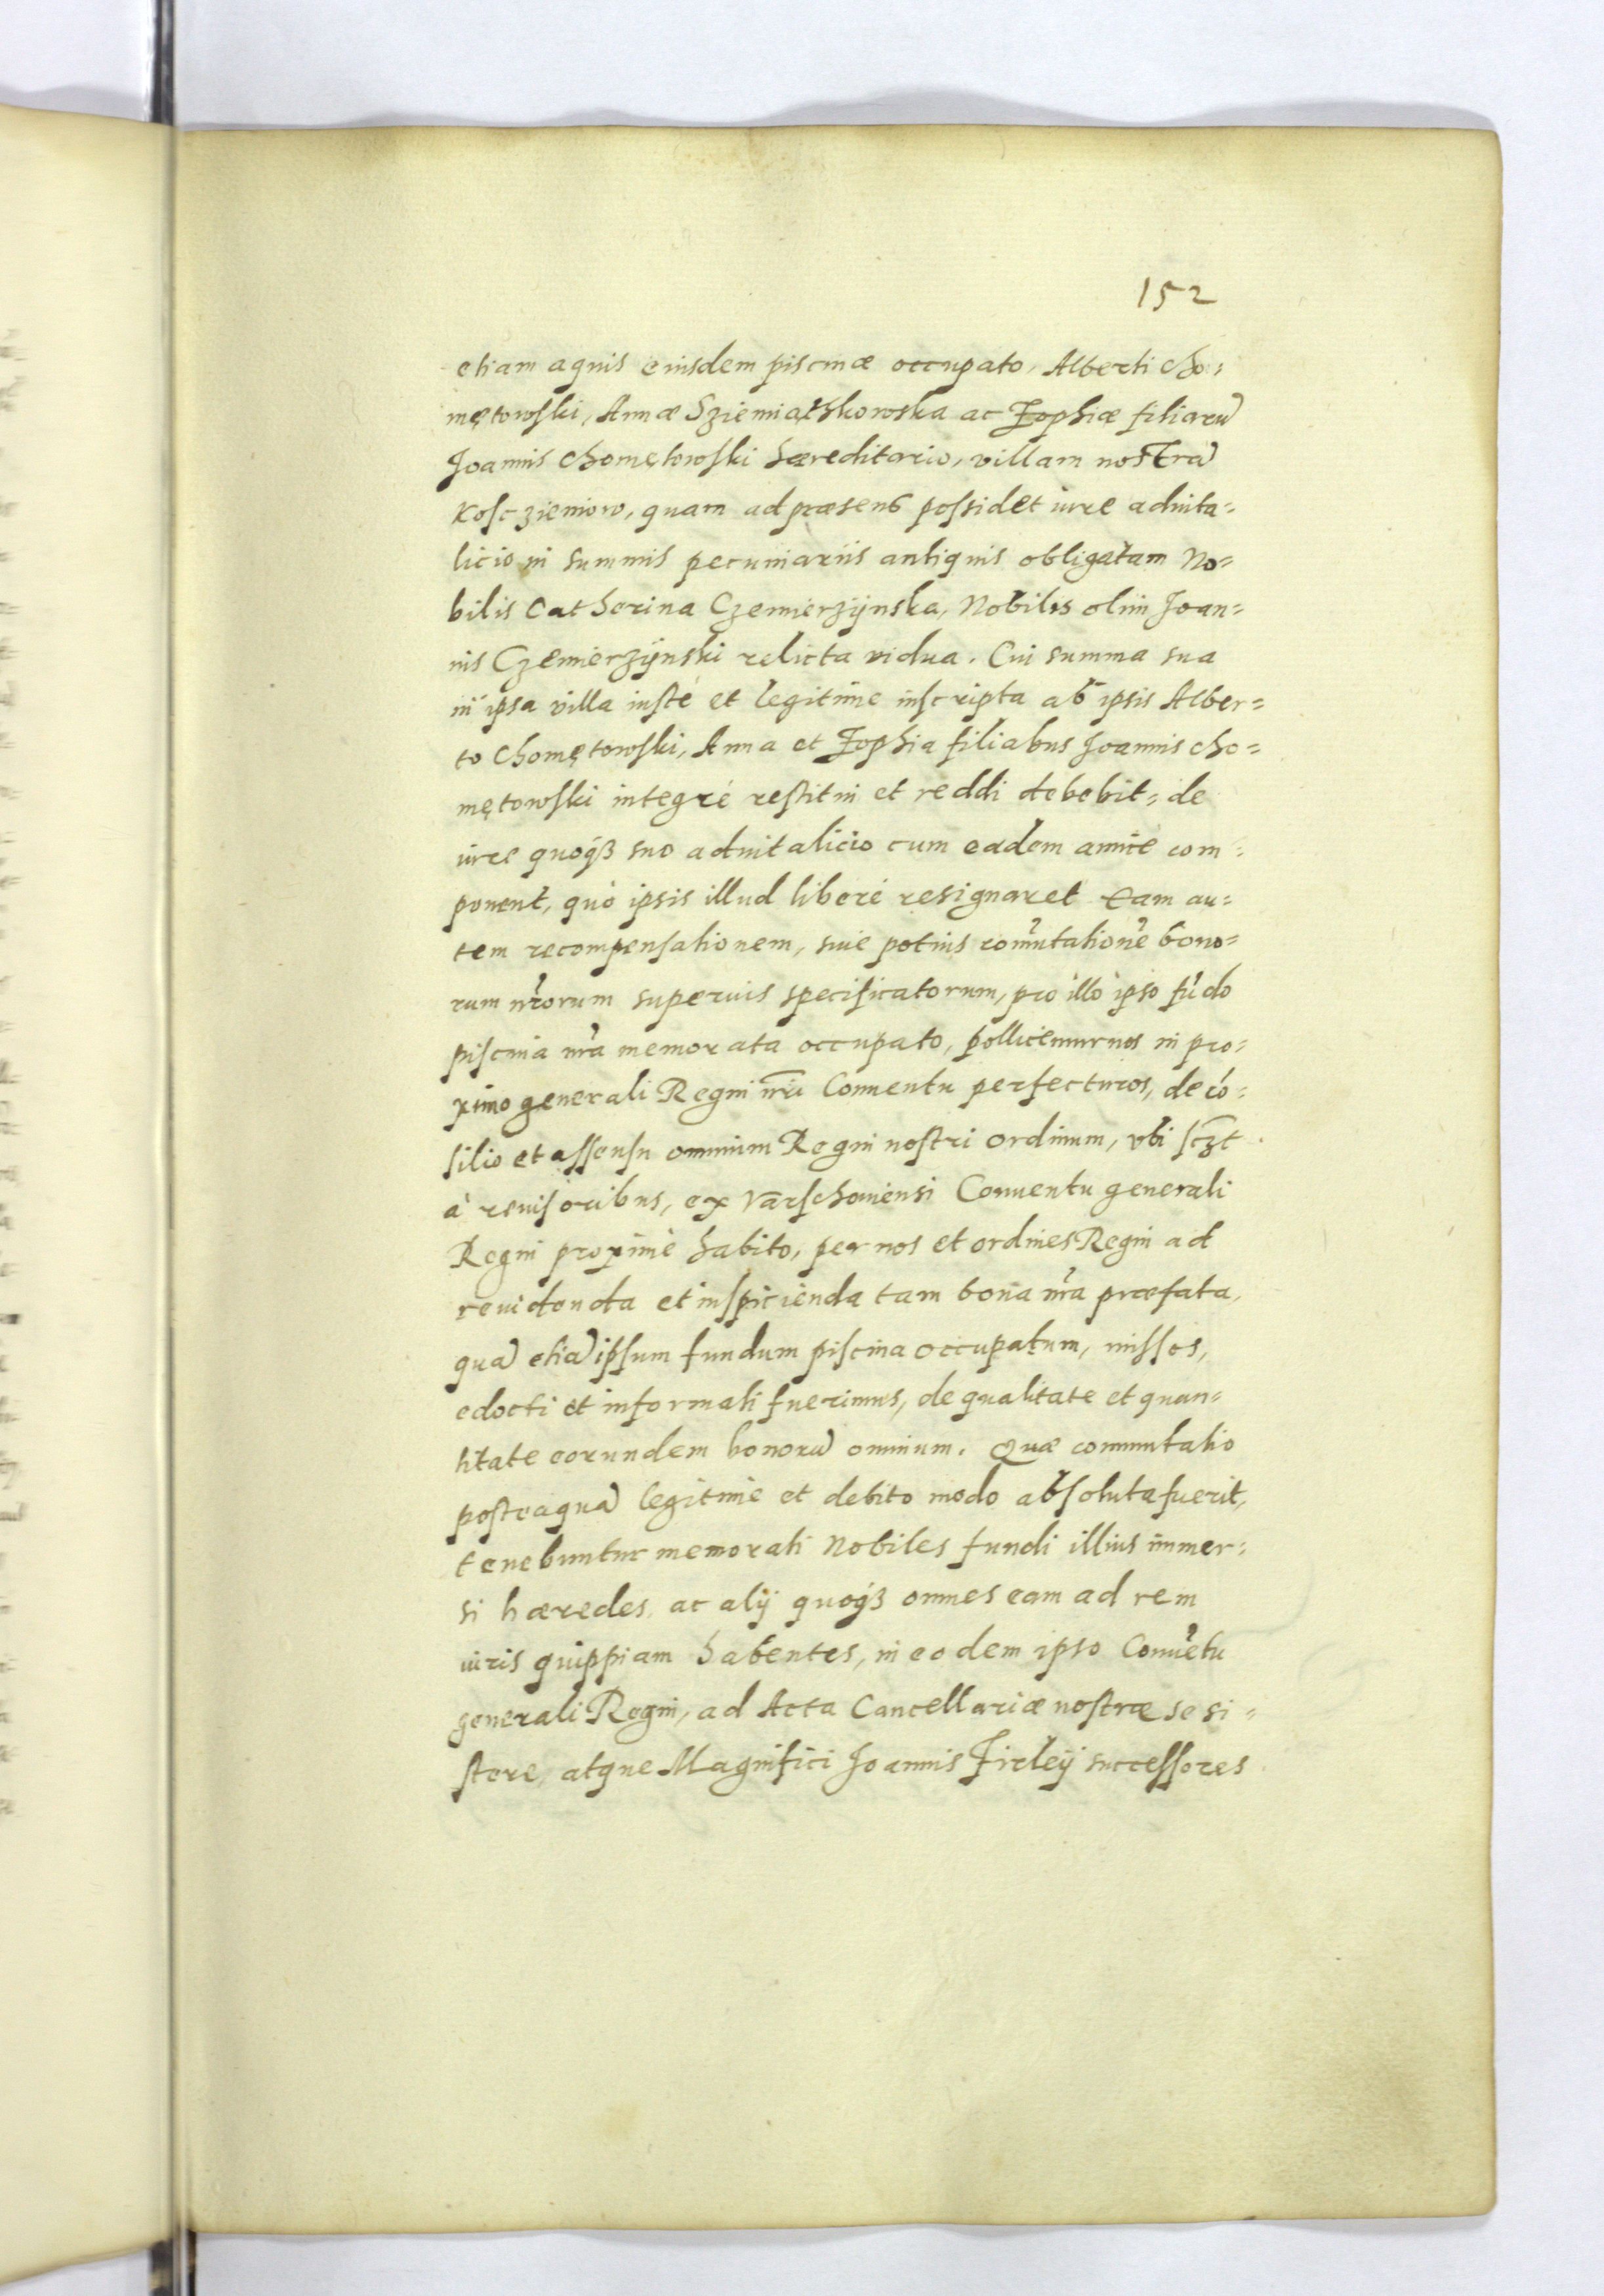 152
etiam aquis eiusdem piscinæ occupato, Alberti Cho=
mętowski, Annæ Sziemiathkowska ac Zophiæ filiarũ
Joannis Chomętowski hæreditario, villam nostrã
Kosczieniow, quam ad præsens possidet iure aduita=
licio in summis pecuniariis antiquis obligatam No=
bilis Catherina Czemierzÿnska, Nobilis olim Joan=
nis Czemierzÿnski relicta vidua. Cui summa sua
in ipsa villa iustè et legitime inscripta ab ipsis Alber=
to Chomętowski, Anna et Zophia filiabus Joannis Cho=
mętowski integrè restitui et reddi debebit, de
iure quoqȝ suo aduitalicio cum eadem amice com=
ponent, quò ipsis illud liberè resignaret Eam au=
tem recompensationem, siue potius com̃utationẽ bono=
rum nr̃orum superius specificatorum, pro illo ipso fũdo
piscina nr̃a memorata occupato, pollicemur nos in pro=
ximo generali Regni nr̃i Conuentu perfecturos, de cõ=
silio et assensu omnium Regni nostri Ordinum, vbi sczt
à reuisoribus, ex Varschouiensi Conuentu generali
Regni proximè habito, per nos et ordines Regni ad
reuidenda et inspicienda tam bona nr̃a præfata,
quã etiã ipsum fundum piscina occupatum, missos,
edocti et informati fuerimus, de qualitate et quan=
titate eorundem bonorũ omnium. Quæ commutatio
posteaquã legitime et debito modo absoluta fuerit,
tenebuntur memorati Nobiles fundi illius immer=
si hæredes, ac alÿ quoqȝ omnes eam ad rem
iuris quippiam habentes, in eodem ipso Conuẽtu
generali Regni, ad Acta Cancellariæ nostræ se si=
stere, atque Magnifici Joannis Firleÿ successores